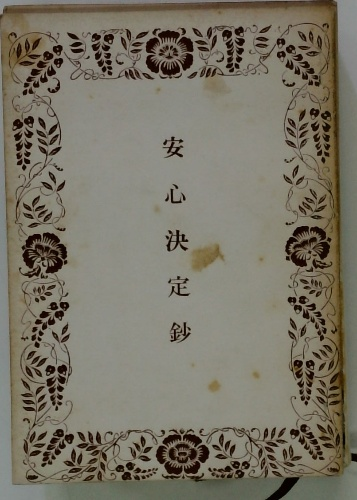 安心決定鈔